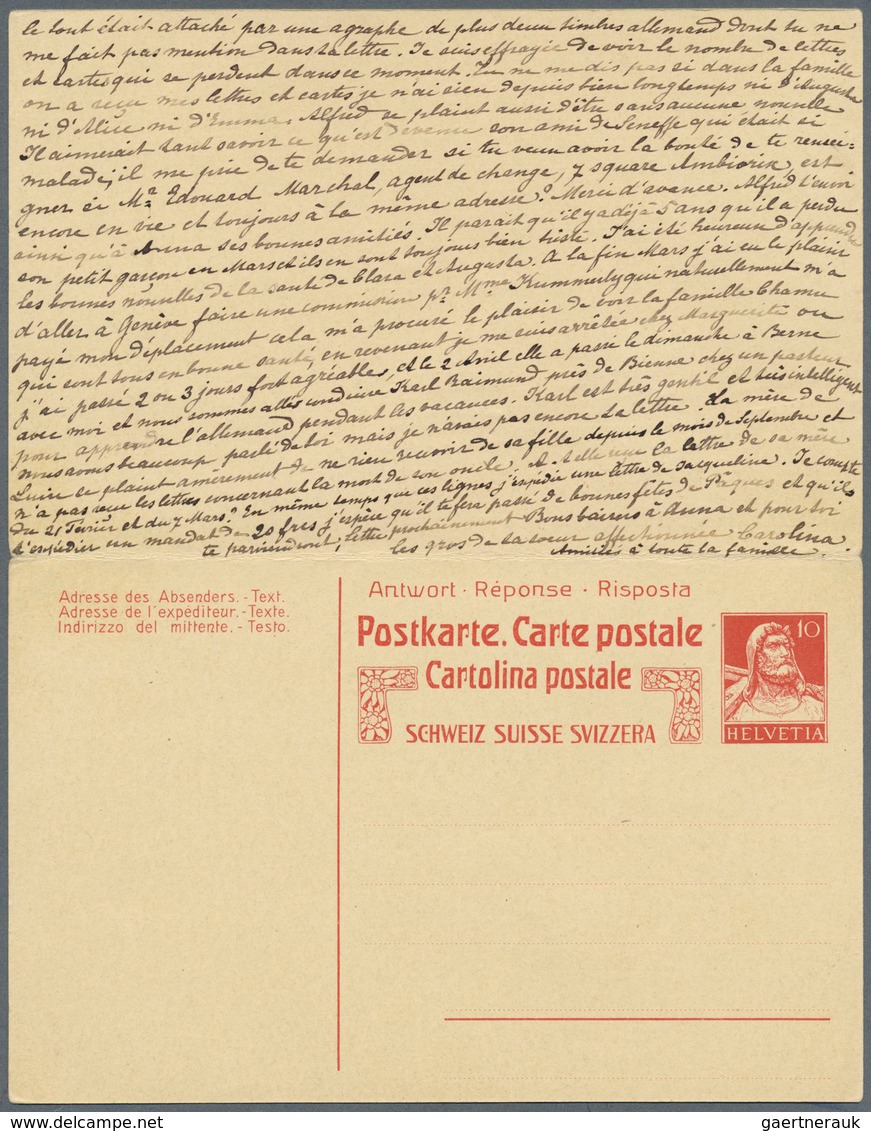 le tout était attaché par une agraphe de plus deux timbres allemand dont tu ne
me fait pas mention dans ta lettre. Je suis effrayée de voir le nombre de lettres
et cartes qui se perdent dans ce moment. Tu ne me dis pas si dans la famille
on a reçu mes lettres et cartes je n'ai rien depuis bien longtemps ni d'Augusta
ni d'Alice ni d'Emma. Alfred se plaint aussi d'être sans aucune nouvelle
Il aimerait tant savoir ce qu'est devenu son ami de Seneffe qui était si
malade, il me prie de te demander si tu veux avoir la bonté de te rensei=
gner si Mr. Edouard Marchal, agent de change, 7 square Ambiorix, est
encore en vie et toujours à la même adresse? Merci d'avance. Alfred t'envoi
ainsi qu'à Anna ses bonnes amitiés. Il parait qu'il y a déjà 5 ans qu'il a perdu
son petit garçon en Mars et ils en sont toujours bien triste. J'ai été heureux d'apprendre
les bonnes nouvelles de la santé de Clara et Augusta. A la fin Mars j'ai eu le plaisir
d'aller à Genève faire une commission pr. Mme Kummerly qui naturellement m'a
payé mon déplacement cela m'a procuré le plaisir de voir la famille Chamu
qui sont tous en bonne santé, en revenant je me suis arrêtée chez Marguerite ou
j'ai passé 2 ou 3 jours fort agréables, et le 2 Avril elle a passé le dimanche à Berne
avec moi et nous sommes allés conduire Karl Raimund près de Bienne chez un pasteur
pour apprendre l'allemand pendant les vacances. Karl est très gentil et très intelligent
nous avons beaucoup parlé de toi mais je n'avais pas encore ta lettre. La mère de
Luise se plaint amèrement de ne rien recevoir de sa fille depuis le mois de Septembre et
n'a pas reçue les lettres concernant la mort de son oncle. A-t-elle reçu la lettre de sa mère
du 21 Février et du 7 Mars? En même temps que ces lignes j'expédie une lettre de Jacqueline. Je compte
t'expédier un mandat de 20 frcs j'espère qu'il te fera passé de bonnes fêtes de Pâques et qu'ils
te parviendront, lettre prochainement Bons baisers à Anna et pour toi
les gros de ta soeur affectionnée Carolina
Amitiés à toute la famille.
Adresse des Absenders.-Text.
Adresse de l'expéditeur.-Texte.
Indirizzo del mittente.-Testo.
Antwort · Réponse · Risposta
Postkarte. Carte postale
Cartolina postale
SCHWEIZ SUISSE SVIZZERA
10
HELVETIA
gaertnerauk